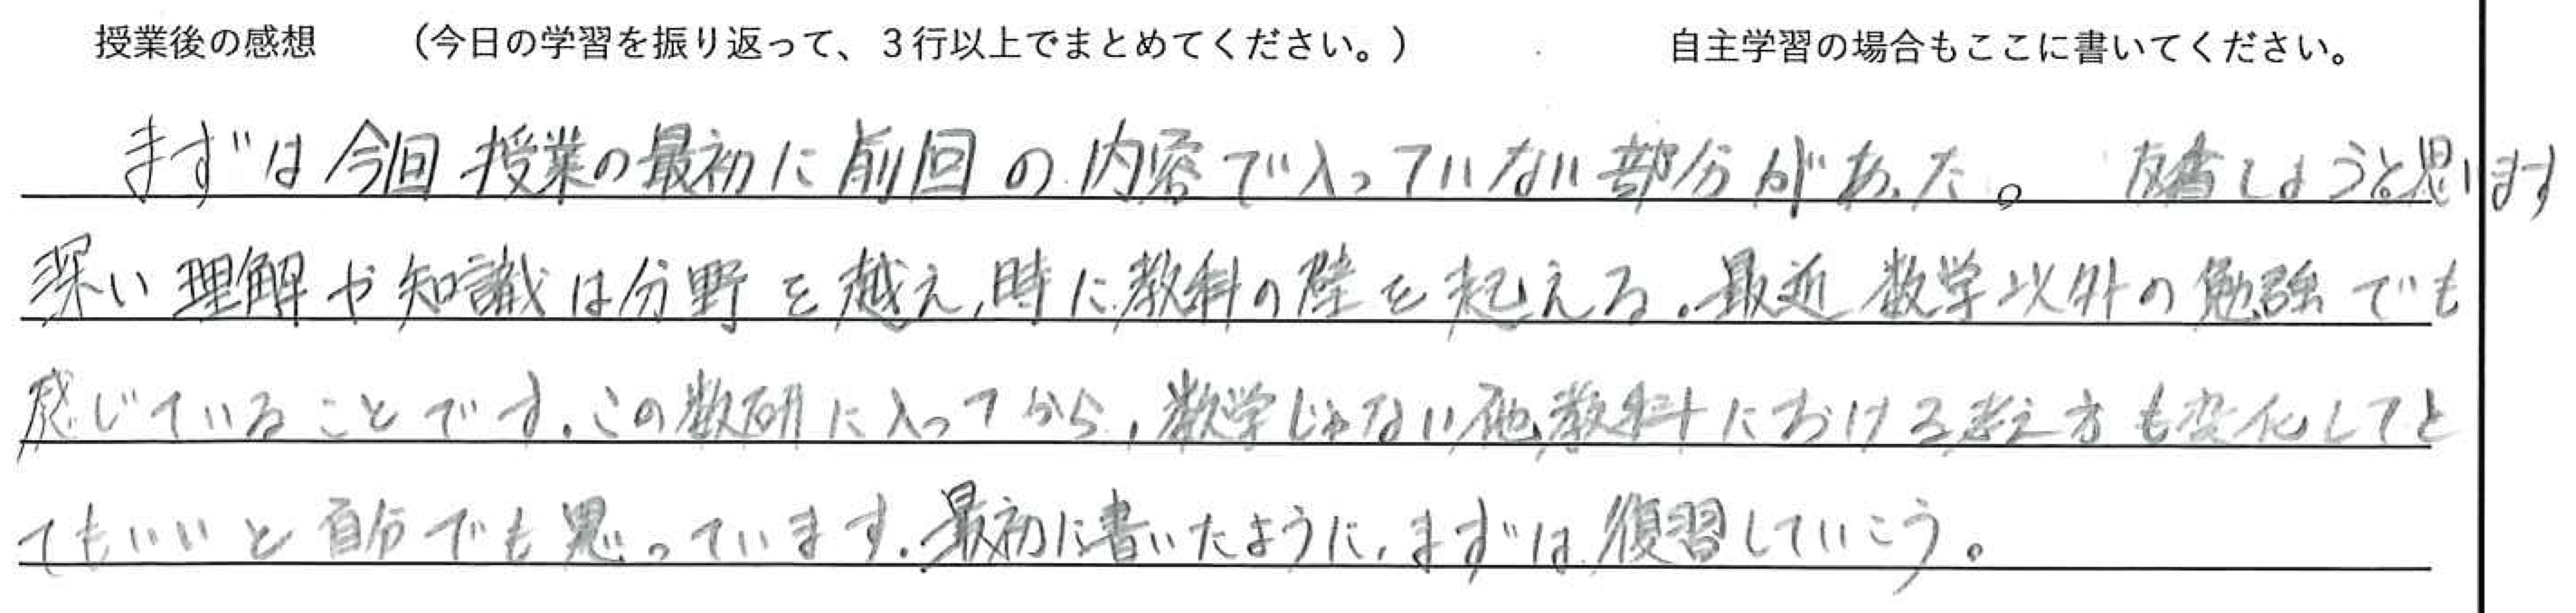 授業後の感想　（今日の学習を振り返って、３行以上でまとめてください。）　自主学習の場合もここに書いてください。
まずは今回授業の最初に前回の内容で入っていない部分があった。しようと思います
深い理解や知識は分野を越え,時に教科の陸を起える。最近数学以外の勉強でも
感じていることです。この数研に入ってから,数学じゃない他教科における考え方も変化してと
てもいいと自分でも思っています。最初に書いたように,まずは復習していこう。